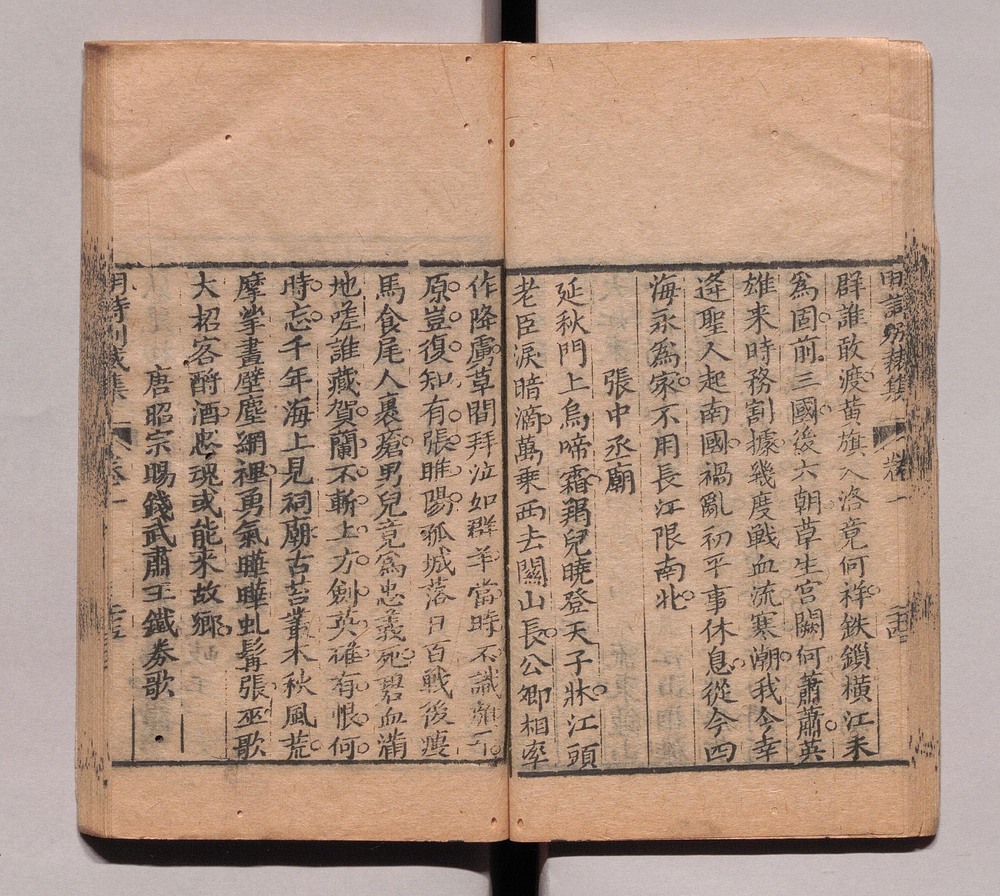 明詩別裁集 卷一
群誰敢渡黃旗入洛竟何祥鐵鎖橫江未
爲固前三國後六朝草生宮闕何蕭蕭英
雄來時務割據幾度戰血流寒潮我今幸
逢聖人起南國禍亂初平事休息從今四
海永爲家不用長江限南北
張中丞廟
延秋門上烏啼霜羯兒曉登天子牀江頭
老臣淚暗滴萬乘西去關山長公卿相率
作降虜草間拜泣如群羊當時不識顏平
原豈復知有張睢陽孤城落日百戰後瘦
馬食尾人裹瘡男兒竟爲忠義死碧血滿
地嗟誰藏賀蘭不斬上方劍英雄有恨何
時忘千年海上見祠廟古苔叢木秋風荒
摩挲畫壁塵網裡勇氣曄曄虬髯張巫歌
大招客酹酒忠魂或能來故鄉
唐昭宗賜錢武肅王鐵券歌
明詩別裁集 卷一